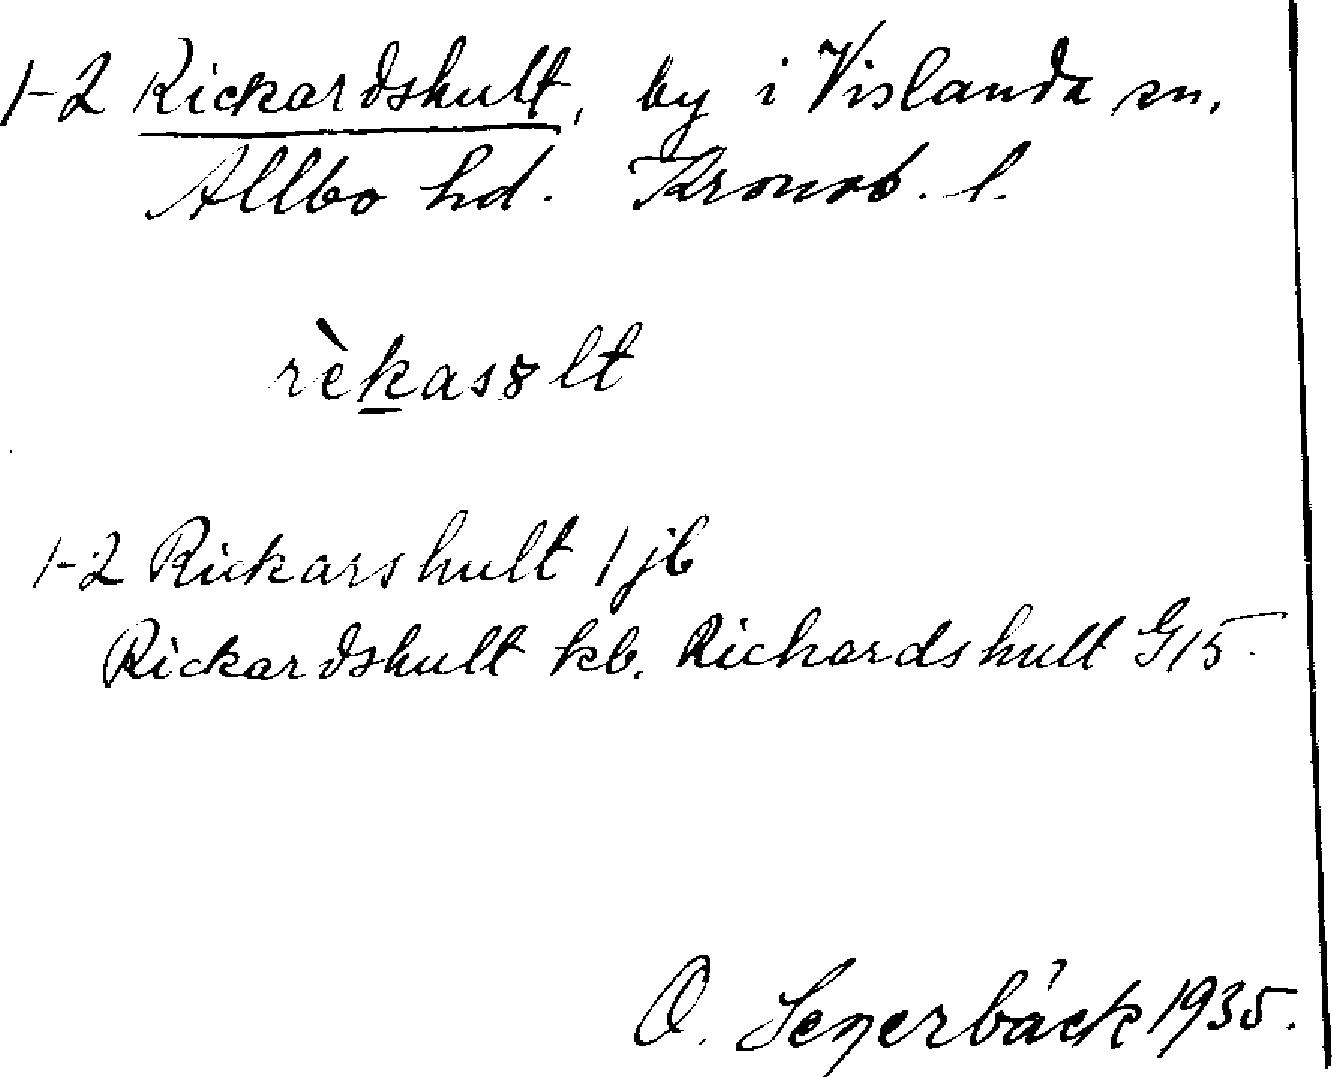 1-2 Rickardshult, by i Vislanda sn.
Allbo hd. Kronob. l.
rèkasȣlt
1-2 Rickarshult 1 jb
Rickardshult kb. Richardshult G15.
O. Segerbäck 1935.